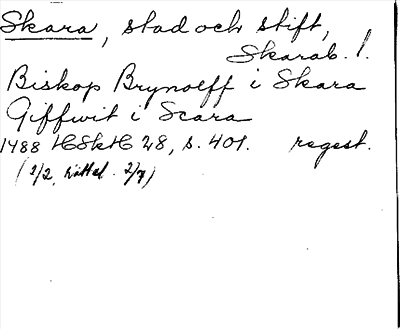 Skara, stad och stift,
Skarab. l.
Biskop Brynolff i Skara
Giffwit i Scara
1488 HSkH 28, s. 401. regest.
(2/2, 2/7)